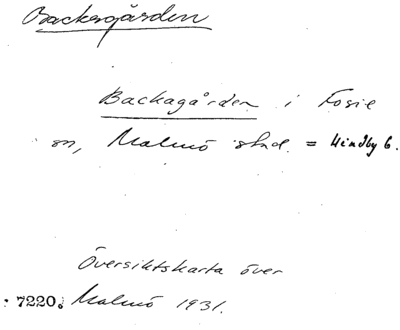 Backagården
Backagården i Fosie
sn, Malmö stad. = Hindby 6.
Översiktskarta över
7220. Malmö 1931.